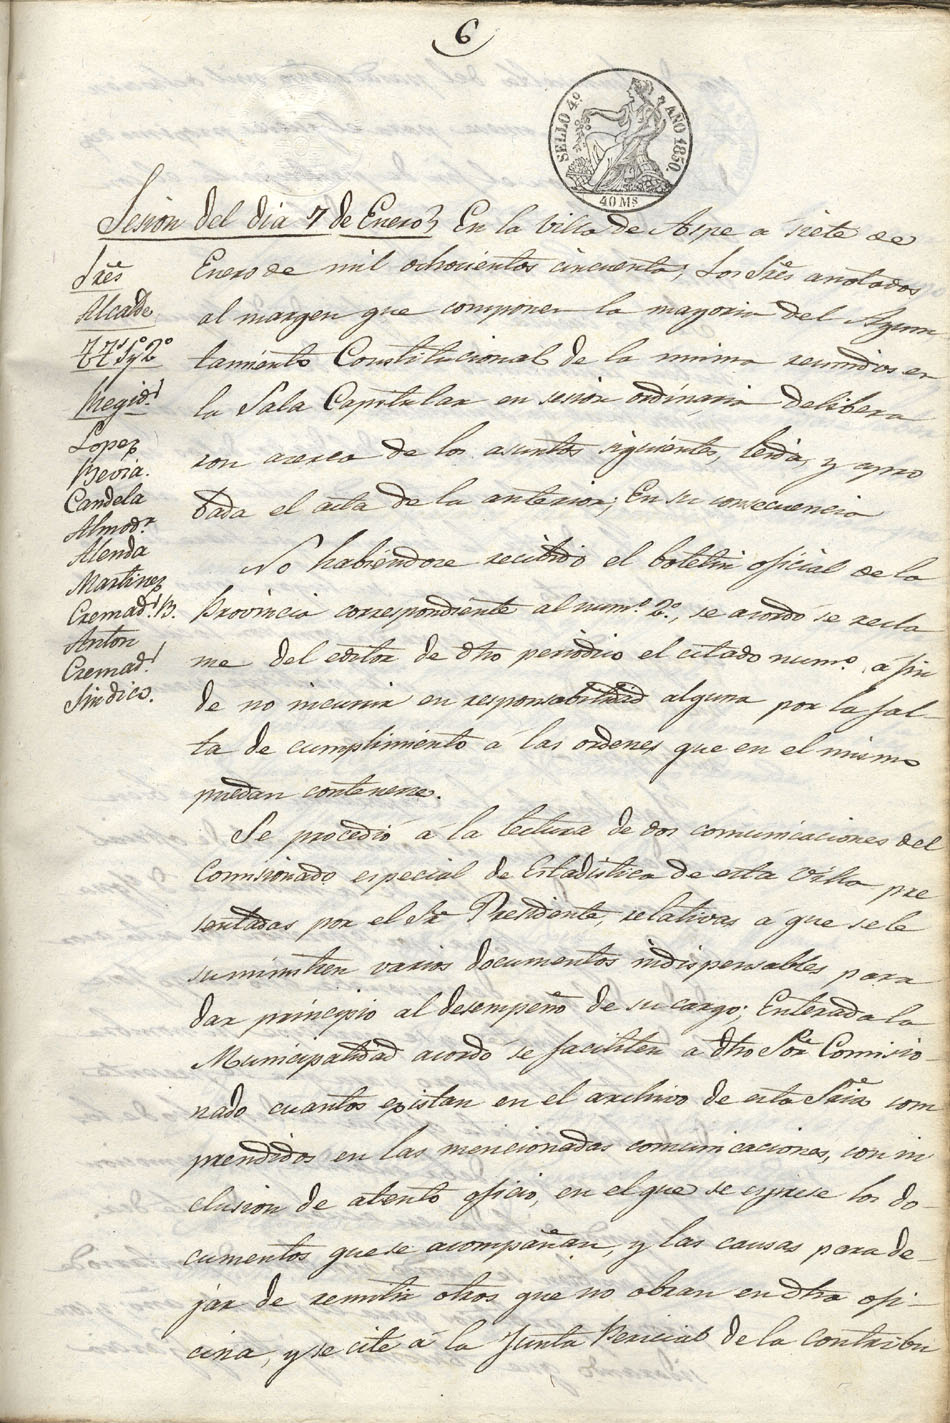 6
SELLO 4º AÑO 1850.
40 Ms
Sesion del dia 7 de Enero} En la Villa de Aspe á siete de
Enero de mil ochocientos cincuenta; Los Sres anotados
al margen que componen la mayoria del Ayun
tamiento Constitucional de la misma reunidos en
la Sala Capitular en sesion ordinaria delibera
ron acerca de los asuntos siguientes, leida, y apro
bada el acta de la anterior; En su consecuencia
Sres
Alcalde
TTs 1º y 2º
Regids
Lopez
Bevia.
Candela
Almodr
Alenda
Martinez
Cremads B.
Anton
Cremads
Sindico.
No habiendose recibido el boletin oficial de la
Provincia correspondiente al numº 2º, se acordó se recla
me del editor de dho periodico el citado numº, a fin
de no incurrir en responsabilidad alguna por la fal-
ta de cumplimiento á las ordenes que en el mismo
puedan contenerse.
Se procedió á la lectura de dos comunicaciones del
Comisionado especial de Estadistica de esta Villa pre
sentadas por el Sr Presidente, relativas á que se le
suministren varios documentos indispensables para
dar principio al desempeño de su cargo; Enterada la
Municipalidad acordó se faciliten á dho Sor Comisio-
nado cuantos existan en el archivo de esta Sria com
prendidos en las mencionadas comunicaciones, con in
clusion de atento oficio, en el que se esprese los do-
cumentos que se acompañan, y las causas para de-
jar de remitir otros que no obran en dha ofi-
cina, y se cite á la Junta Pericial de la contribu